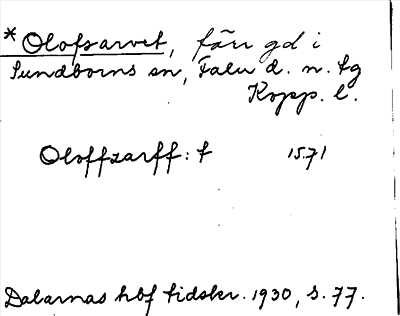 * Olofsarvet, färr gd i
Sundborns sn, Falu d. n. tg
Kopp. l.
Oloffzarff: t 1571
Dalarnas hbf tidskr. 1930, s. 77.